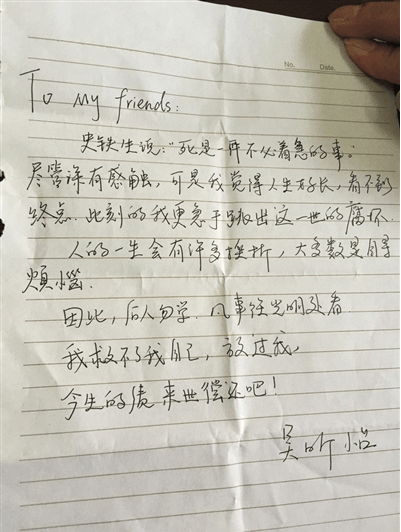 No.          Date.
To My friends:
史铁生说:"死是一件不必着急的事。
尽管深有感触,可是我觉得人生好长,看不到
终点.此刻的我更急于跳出这一世的腐怀.
人的一生会有许多挫折,大多数是自寻
烦惱.
因此,后人勿学.凡事往光明处看.
我救不了我自己,放过我,
今生的债来世偿还吧!
吴昕怡